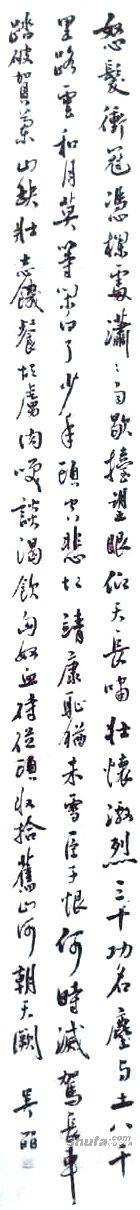 怒髮衝冠憑欄處瀟〻雨歇擡望眼仰天長嘯壯懷激烈三十功名塵与土八千
里路雲和月莫等閒白了少年頭空悲切靖康恥猶未雪臣子恨何時滅駕長車
踏破賀蘭山缺壯志饑餐胡虜肉笑談渴飲匈奴血待從頭收拾舊山河朝天闕
shufa.com